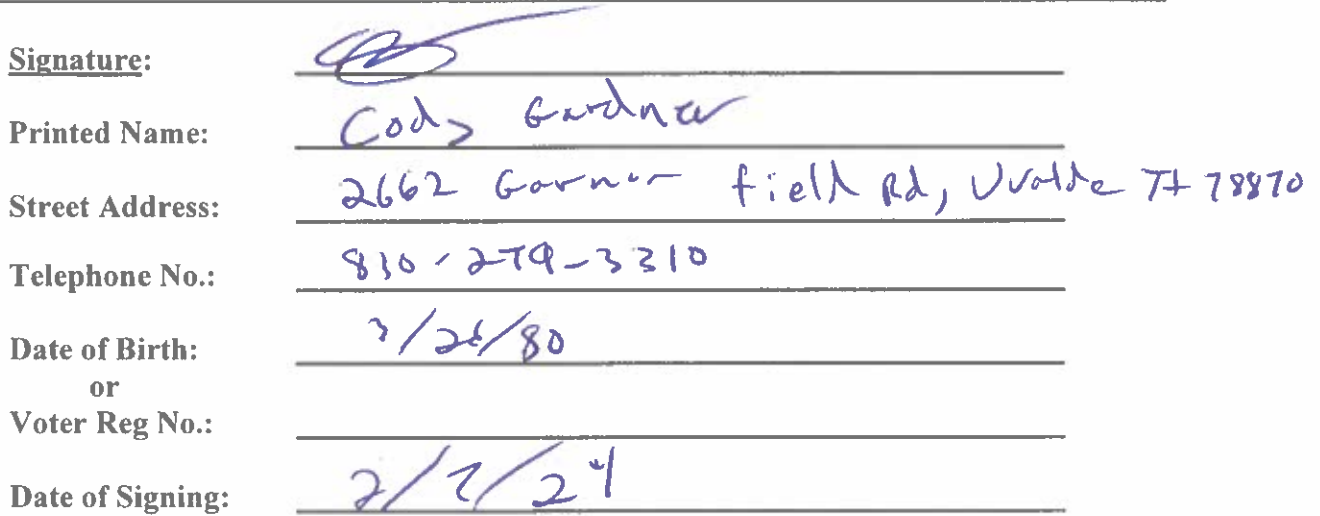 Signature:
Printed Name: Cody Gardner
Street Address: 2662 Garner field Rd, Uvalde TX 78870
Telephone No.: 830-279-3310
Date of Birth: 3/26/80
or
Voter Reg No.:
Date of Signing: 2/7/24